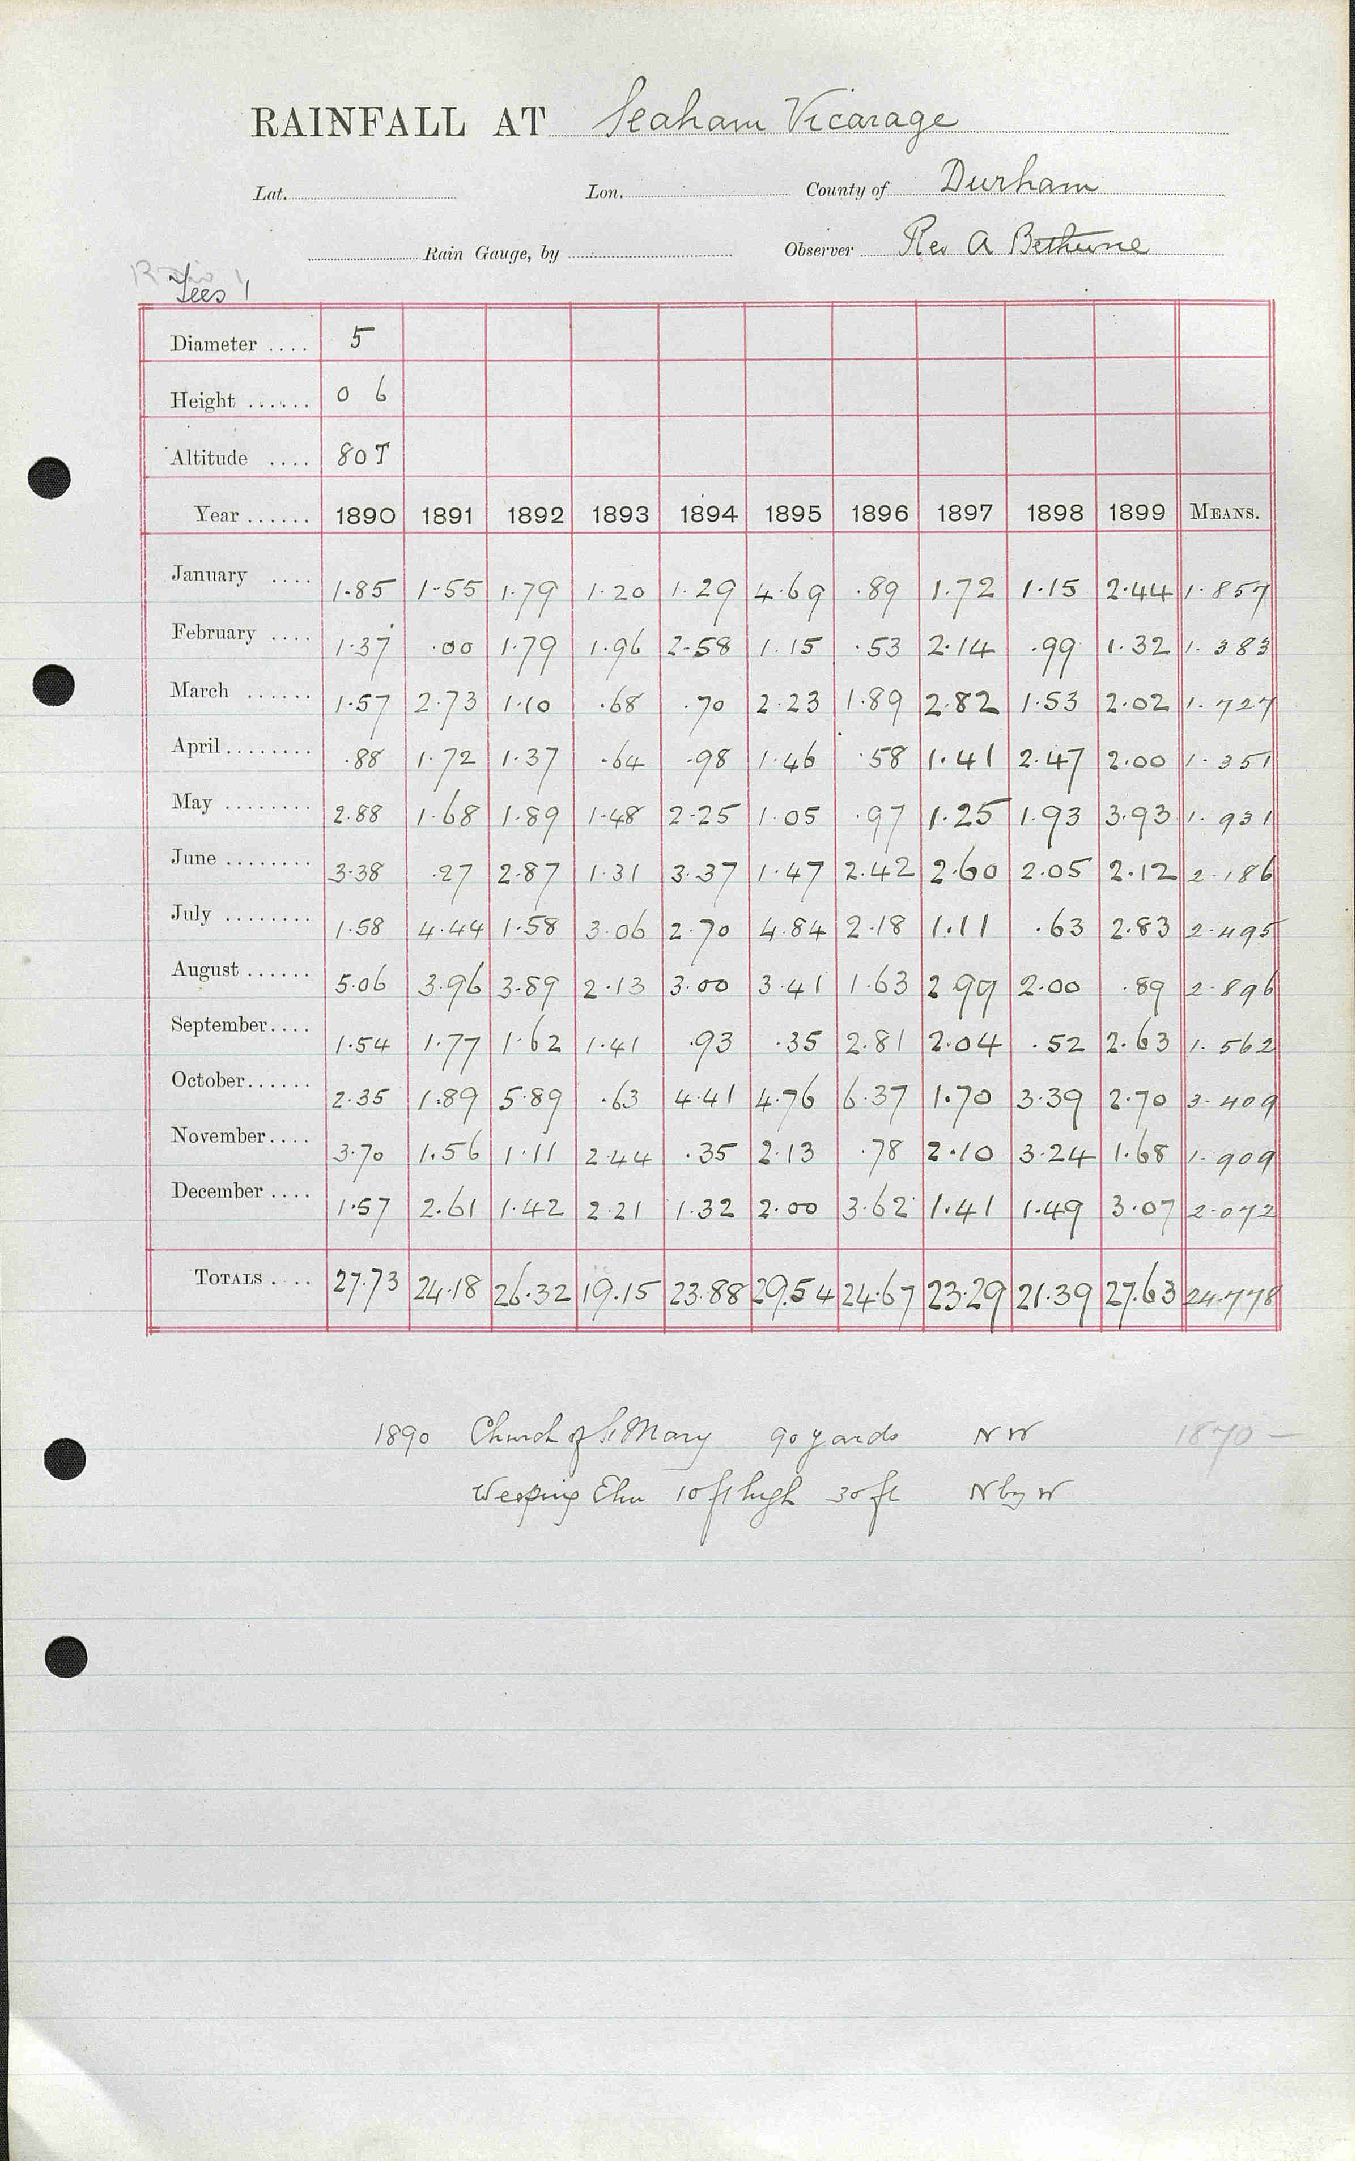 RAINFALL AT Seaham Vicarage
Lat. Lon. County of Durham
Rain Gauge, by Observer Rev A Bethune
Tees 1
Diameter .... 5
Height ...... 0 6
Altitude .... 80T
Year ...... 1890 1891 1892 1893 1894 1895 1896 1897 1898 1899 MEANS.
January .... 1.85 1.55 1.79 1.20 1.29 4.69 .89 1.72 1.15 2.44 1.857
February .... 1.37 .00 1.79 1.96 2.58 1.15 .53 2.14 .99 1.32 1.383
March ...... 1.57 2.73 1.10 .68 .70 2.23 1.89 2.82 1.53 2.02 1.727
April ........ .88 1.72 1.37 .64 .98 1.46 .58 1.41 2.47 2.00 1.351
May ........ 2.88 1.68 1.89 1.48 2.25 1.05 .97 1.25 1.93 3.93 1.931
June ........ 3.38 .27 2.87 1.31 3.37 1.47 2.42 2.60 2.05 2.12 2.186
July ........ 1.58 4.44 1.58 3.06 2.70 4.84 2.18 1.11 .63 2.83 2.495
August ...... 5.06 3.96 3.89 2.13 3.00 3.41 1.63 2.99 2.00 .89 2.896
September.... 1.54 1.77 1.62 1.41 .93 .35 2.81 2.04 .52 2.63 1.562
October...... 2.35 1.89 5.89 .63 4.41 4.76 6.37 1.70 3.39 2.70 3.409
November.... 3.70 1.56 1.11 2.44 .35 2.13 .78 2.10 3.24 1.68 1.909
December .... 1.57 2.61 1.42 2.21 1.32 2.00 3.62 1.41 1.49 3.07 2.072
TOTALS .... 27.73 24.18 26.32 19.15 23.88 29.54 24.67 23.29 21.39 27.63 24.778
1890 Church of St Mary 90 yards NW 1870 –
Weeping Elm 10 ft high 30 ft N by W